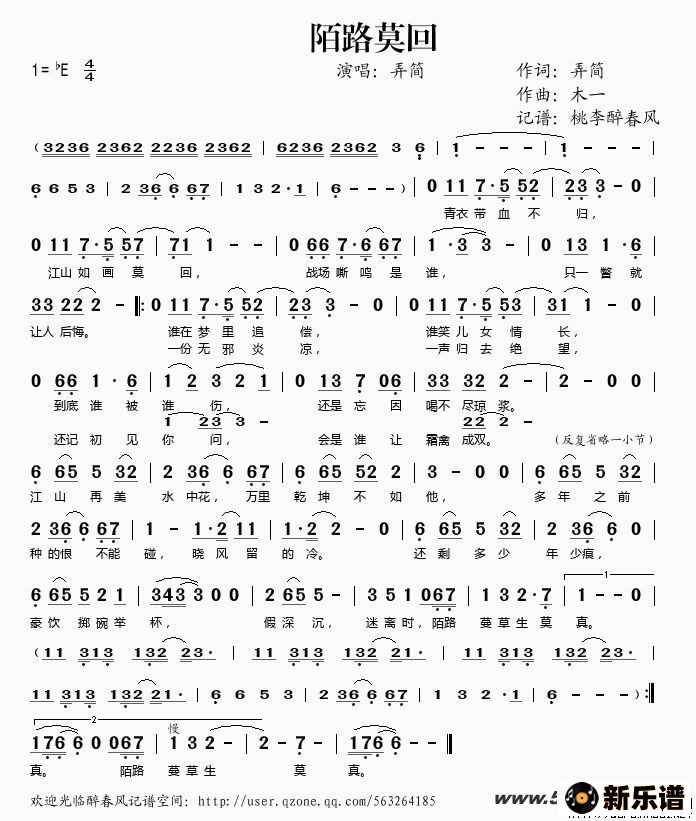 陌路莫回
1=♭E 4/4 演唱：弄简 作词：弄简
作曲：木一
记谱：桃李醉春风
(3236 2362 2236 2362 | 6236 2362 3 6 | 1 - - - | 1 - - -
6 6 5 3 | 2 36 6 67 | 1 3 2· 1 | 6 - - - ) | 0 11 7·5 52 | 23 3 - 0 |
青衣 带 血 不 归，
0 11 7·5 57 | 71 1 - - | 0 66 7·6 67 | 1·3 3 - - | 0 13 1 ·6 |
江山 如 画 莫 回， 战场 嘶 鸣 是 谁， 只一 瞥 就
33 22 2 - |: 0 11 7·5 52 | 23 3 - 0 | 0 11 7·5 53 | 31 1 - 0 |
让人 后悔。 谁在 梦 里 追 偿， 谁笑 儿 女 情 长，
一份 无 邪 炎 凉， 一声 归 去 绝 望，
0 66 1· 6 | 1 2 3 2 1 | 0 13 7 06 | 33 32 2 - | 2 - 0 0 |
到底 谁 被 谁 伤， 还是 忘 因 喝不 尽琼 浆。
1 23 3 - 22 2 -
还记 初 见 你 问， 会是 谁 让 霜禽 成双。 (反复省略一小节)
6 65 5 32 | 2 36 6 67 | 6 65 5 32 | 2 36 6 - | 6 65 5 32 |
江 山 再 美 水 中花， 万里 乾 坤 不 如 他， 多 年 之 前
2 36 6 67 | 1 - 1·2 11 | 1·2 2 - 0 | 6 65 5 32 | 2 36 6 0 |
种 的恨 不能 碰， 晓 风 留 的 冷。 还 剩 多 少 年 少痕，
6 65 5 21 | 343 3 0 0 | 2 65 5 - | 3 5 1 067 | 1 3 2·7 | 1 - - 0 |
豪 饮 掷 碗 举 杯， 假 深 沉， 迷 离 时，陌路 蔓 草 生 莫 真。
(11 313 132 21· | 11 313 132 21· | 11 313 132 21· |
11 313 132 21· | 6 6 5 3 | 2 36 6 67 | 1 3 2 · 1 | 6 - - - ) :|
2 慢
176 6 0 067 | 1 3 2 - | 2 - 7 - | 176 6 - - |
真。 陌路 蔓 草 生 莫 真。
欢迎光临醉春风记谱空间：http://user.qzone.qq.com/563264185
www.5
新乐谱